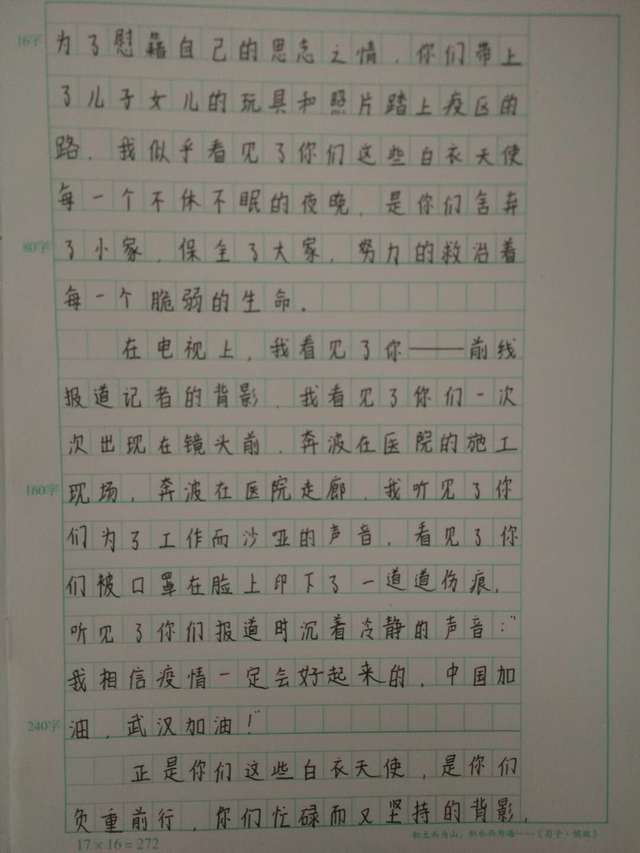 为了慰藉自己的思恋之情，你们带上
了儿子女儿的玩具和照片踏上疫区的
路，我似乎看见了你们这些白衣天使
每一个不休不眠的夜晚，是你们舍弃
80字
了小家，保全了大家，努力的救治着
每一个脆弱的生命。
在电视上，我看见了你——前线
报道记者的背影，我看见了你们一次
次出现在镜头前，奔波在医院的施工
160字
现场，奔波在医院走廊，我听见了你
们为了工作而沙哑的声音，看见了你
们被口罩在脸上印下了一道道伤痕，
听见了你们报道时沉着冷静的声音：“
我相信疫情一定会好起来的，中国加
240字
油，武汉加油！”
正是你们这些白衣天使，是你们
负重前行，你们忙碌而又坚持的背影，
17×16=272